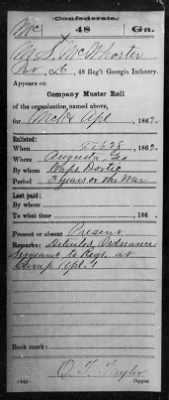 Confederate.
Mc 48 Ga.
M. S. McWhorter
Co. , 48 Reg't Georgia Infantry.
Appears on
Company Muster Roll
of the organization named above,
for Mch & Apl , 1862.
Enlisted:
When Feb 28 , 1862.
Where Augusta, Ga
By whom Capt
Period 3 years or the War
Last paid:
By whom
To what time , 186 .
Present or absent Present
Remarks: Detailed Ordnance
Sergeant to Regt. at
Book mark:
(642)
Copyist.